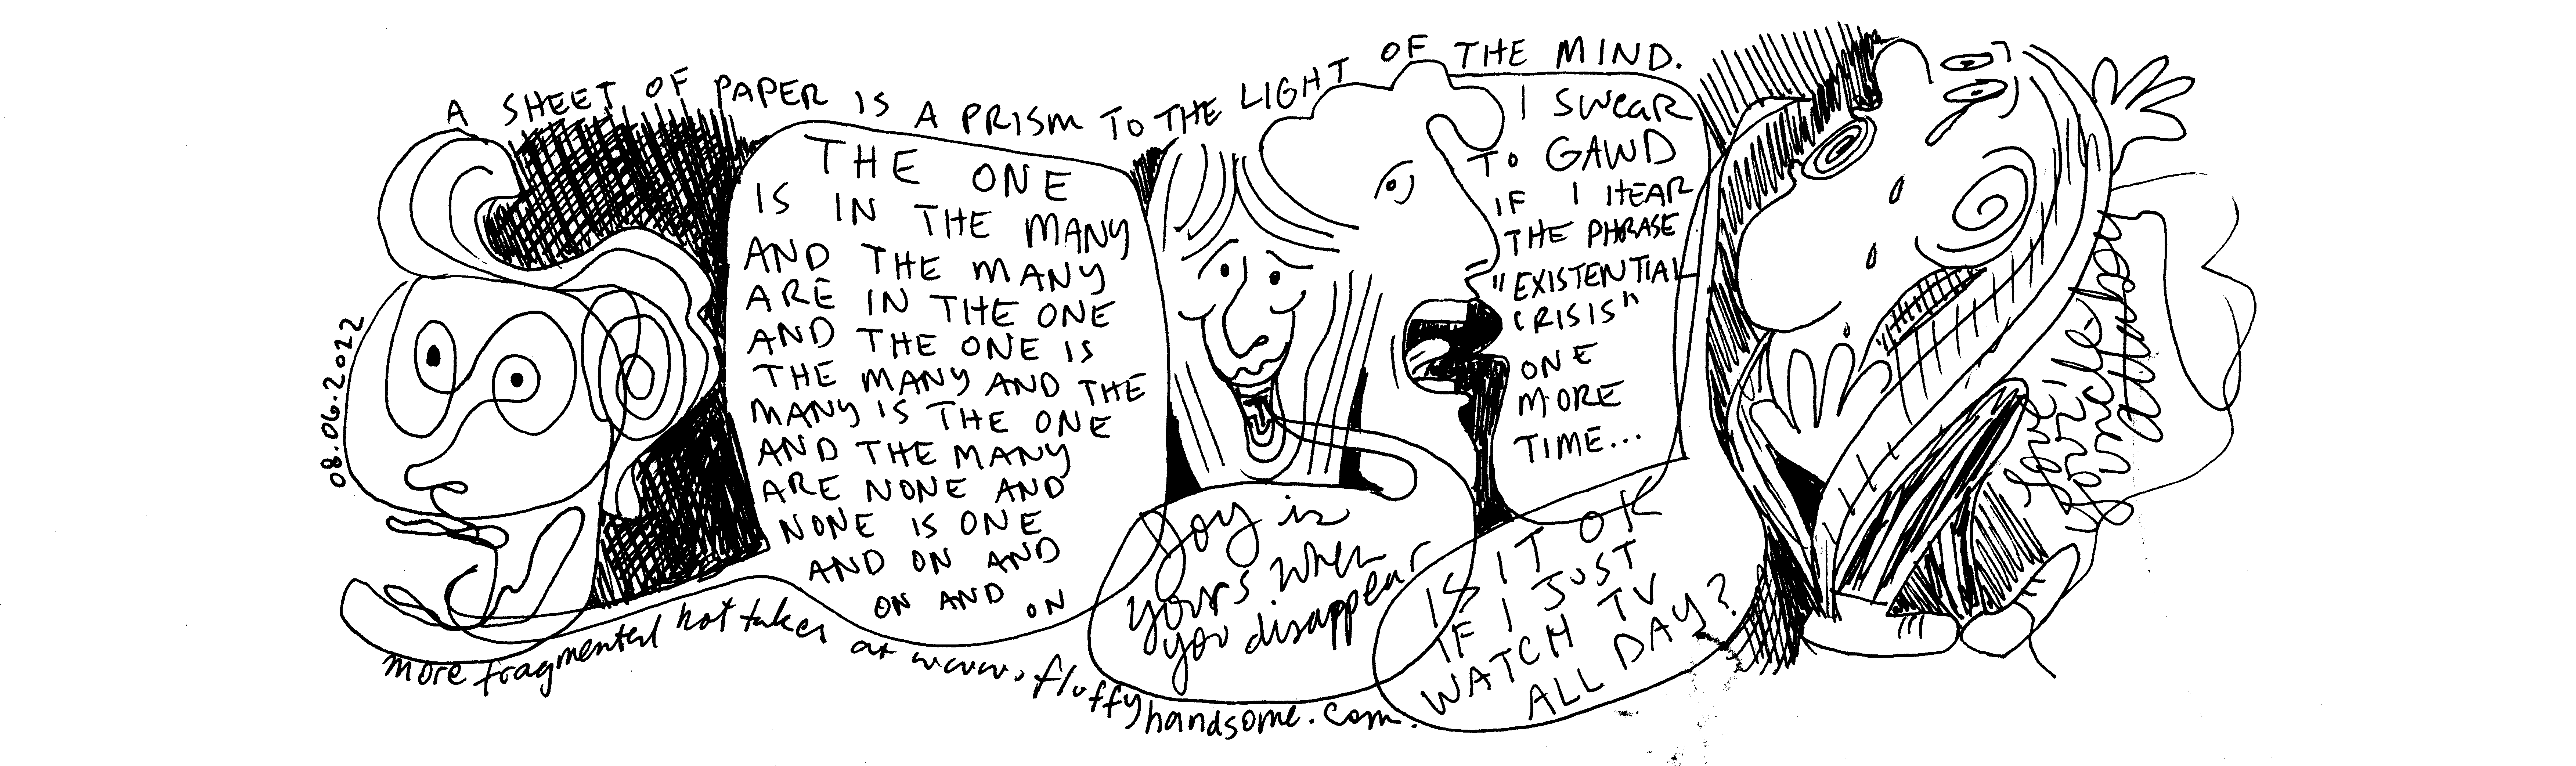 A SHEET OF PAPER IS A PRISM TO THE LIGHT OF THE MIND.
08.06.2022
THE ONE
IS IN THE MANY
AND THE MANY
ARE IN THE ONE
AND THE ONE IS
THE MANY AND THE
MANY IS THE ONE
AND THE MANY
ARE NONE AND
NONE IS ONE
AND ON AND
ON AND ON
Joy is
yours when
you disappear
I SWEAR
TO GAWD
IF I HEAR
THE PHRASE
"EXISTENTIAL
CRISIS"
ONE
MORE
TIME...
IS IT OK
IF I JUST
WATCH TV
ALL DAY?
more fragmented hot takes at www.fluffyhandsome.com.